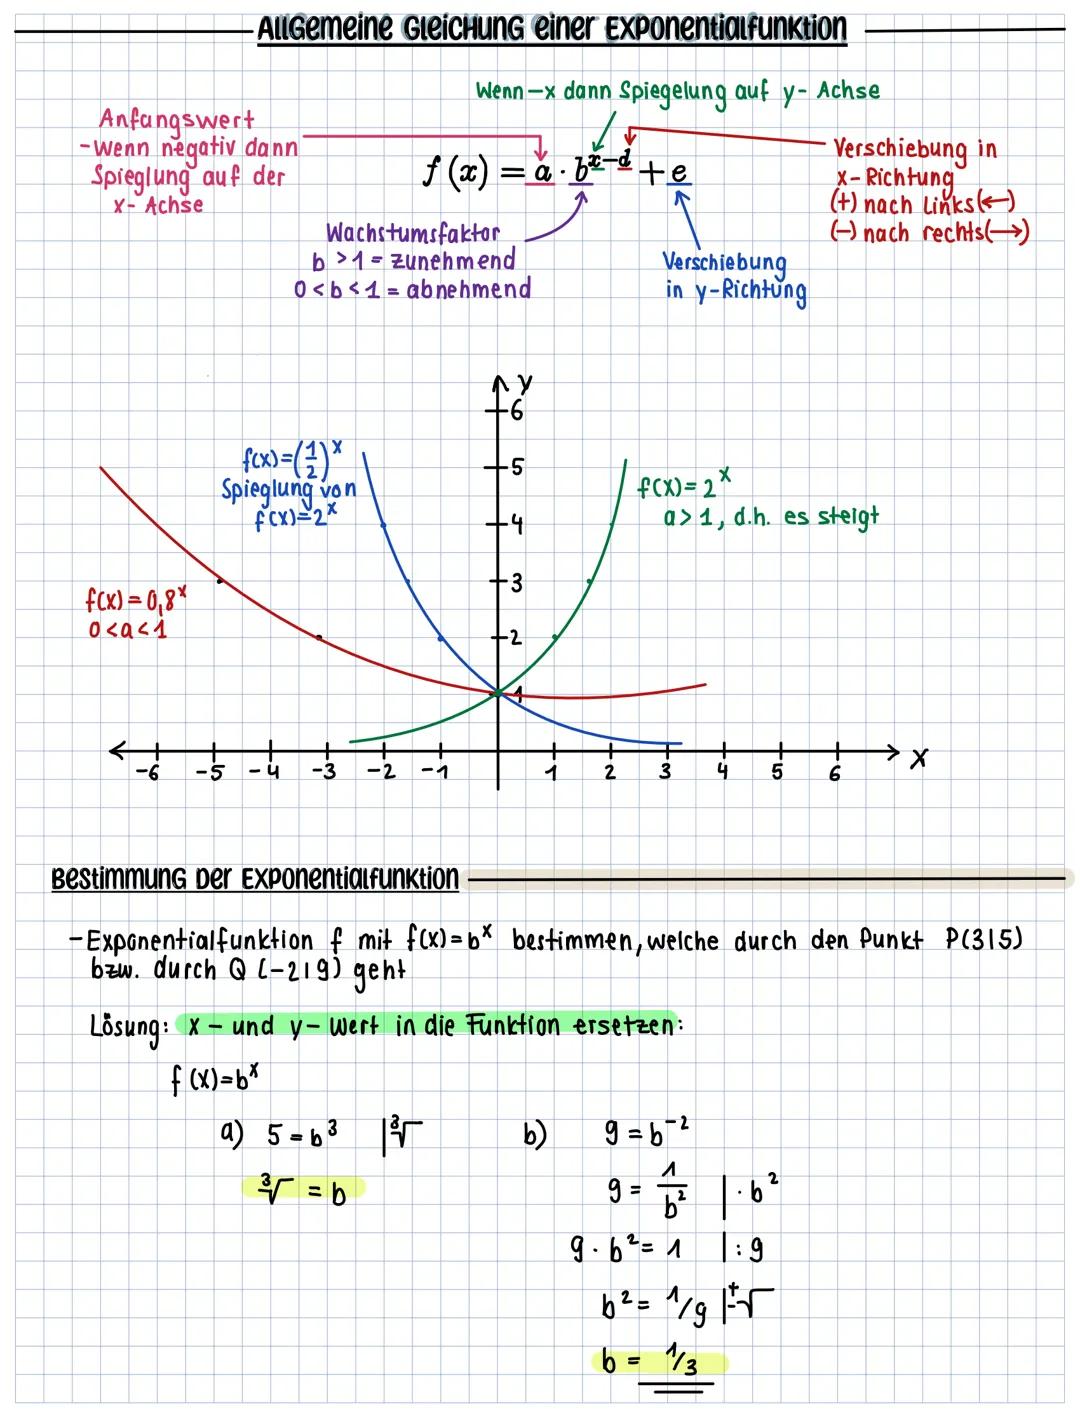 Allgemeine Gleichung einer Exponentialfunktion
Wenn -x dann Spiegelung auf y- Achse
Anfangswert
- Wenn negativ dann
Spieglung auf der
x- Achse
f(x) = a · b^{x-d} + e
Verschiebung in
x- Richtung
(+) nach Links (←)
(-) nach rechts (→)
Wachstumsfaktor
b > 1 = zunehmend
0 < b < 1 = abnehmend
Verschiebung
in y-Richtung
y
6
5
4
3
2
1
f(x)=(1/2)^x
Spieglung von
f(x)=2^x
f(x)= 2^x
a > 1, d.h. es steigt
f(x) = 0,8^x
0 < a < 1
-6 -5 -4 -3 -2 -1 1 2 3 4 5 6 x
Bestimmung der Exponentialfunktion
- Exponentialfunktion f mit f(x)=b^x bestimmen, welche durch den Punkt P(3|5)
bzw. durch Q (-2|9) geht
Lösung: x - und y- Wert in die Funktion ersetzen:
f(x)=b^x
a) 5 = b³ |³√
³√ = b
b) 9 = b⁻²
9 = 1/b² | · b²
9 · b² = 1 | : 9
b² = 1/9 | ±√
b = 1/3